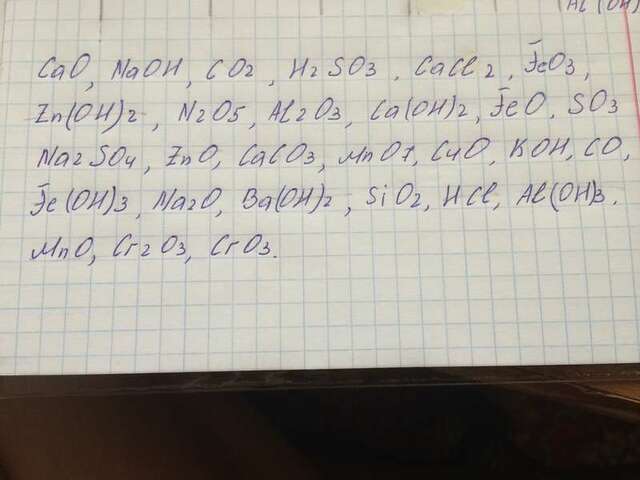 Al(OH)
CaO, NaOH, CO2, H2SO3, CaCl2, FeO3,
Zn(OH)2, N2O5, Al2O3, Ca(OH)2, FeO, SO3
Na2SO4, ZnO, CaCO3, MnO7, CuO, KOH, CO,
Fe(OH)3, Na2O, Ba(OH)2, SiO2, HCl, Al(OH)3.
MnO, Cr2O3, CrO3.